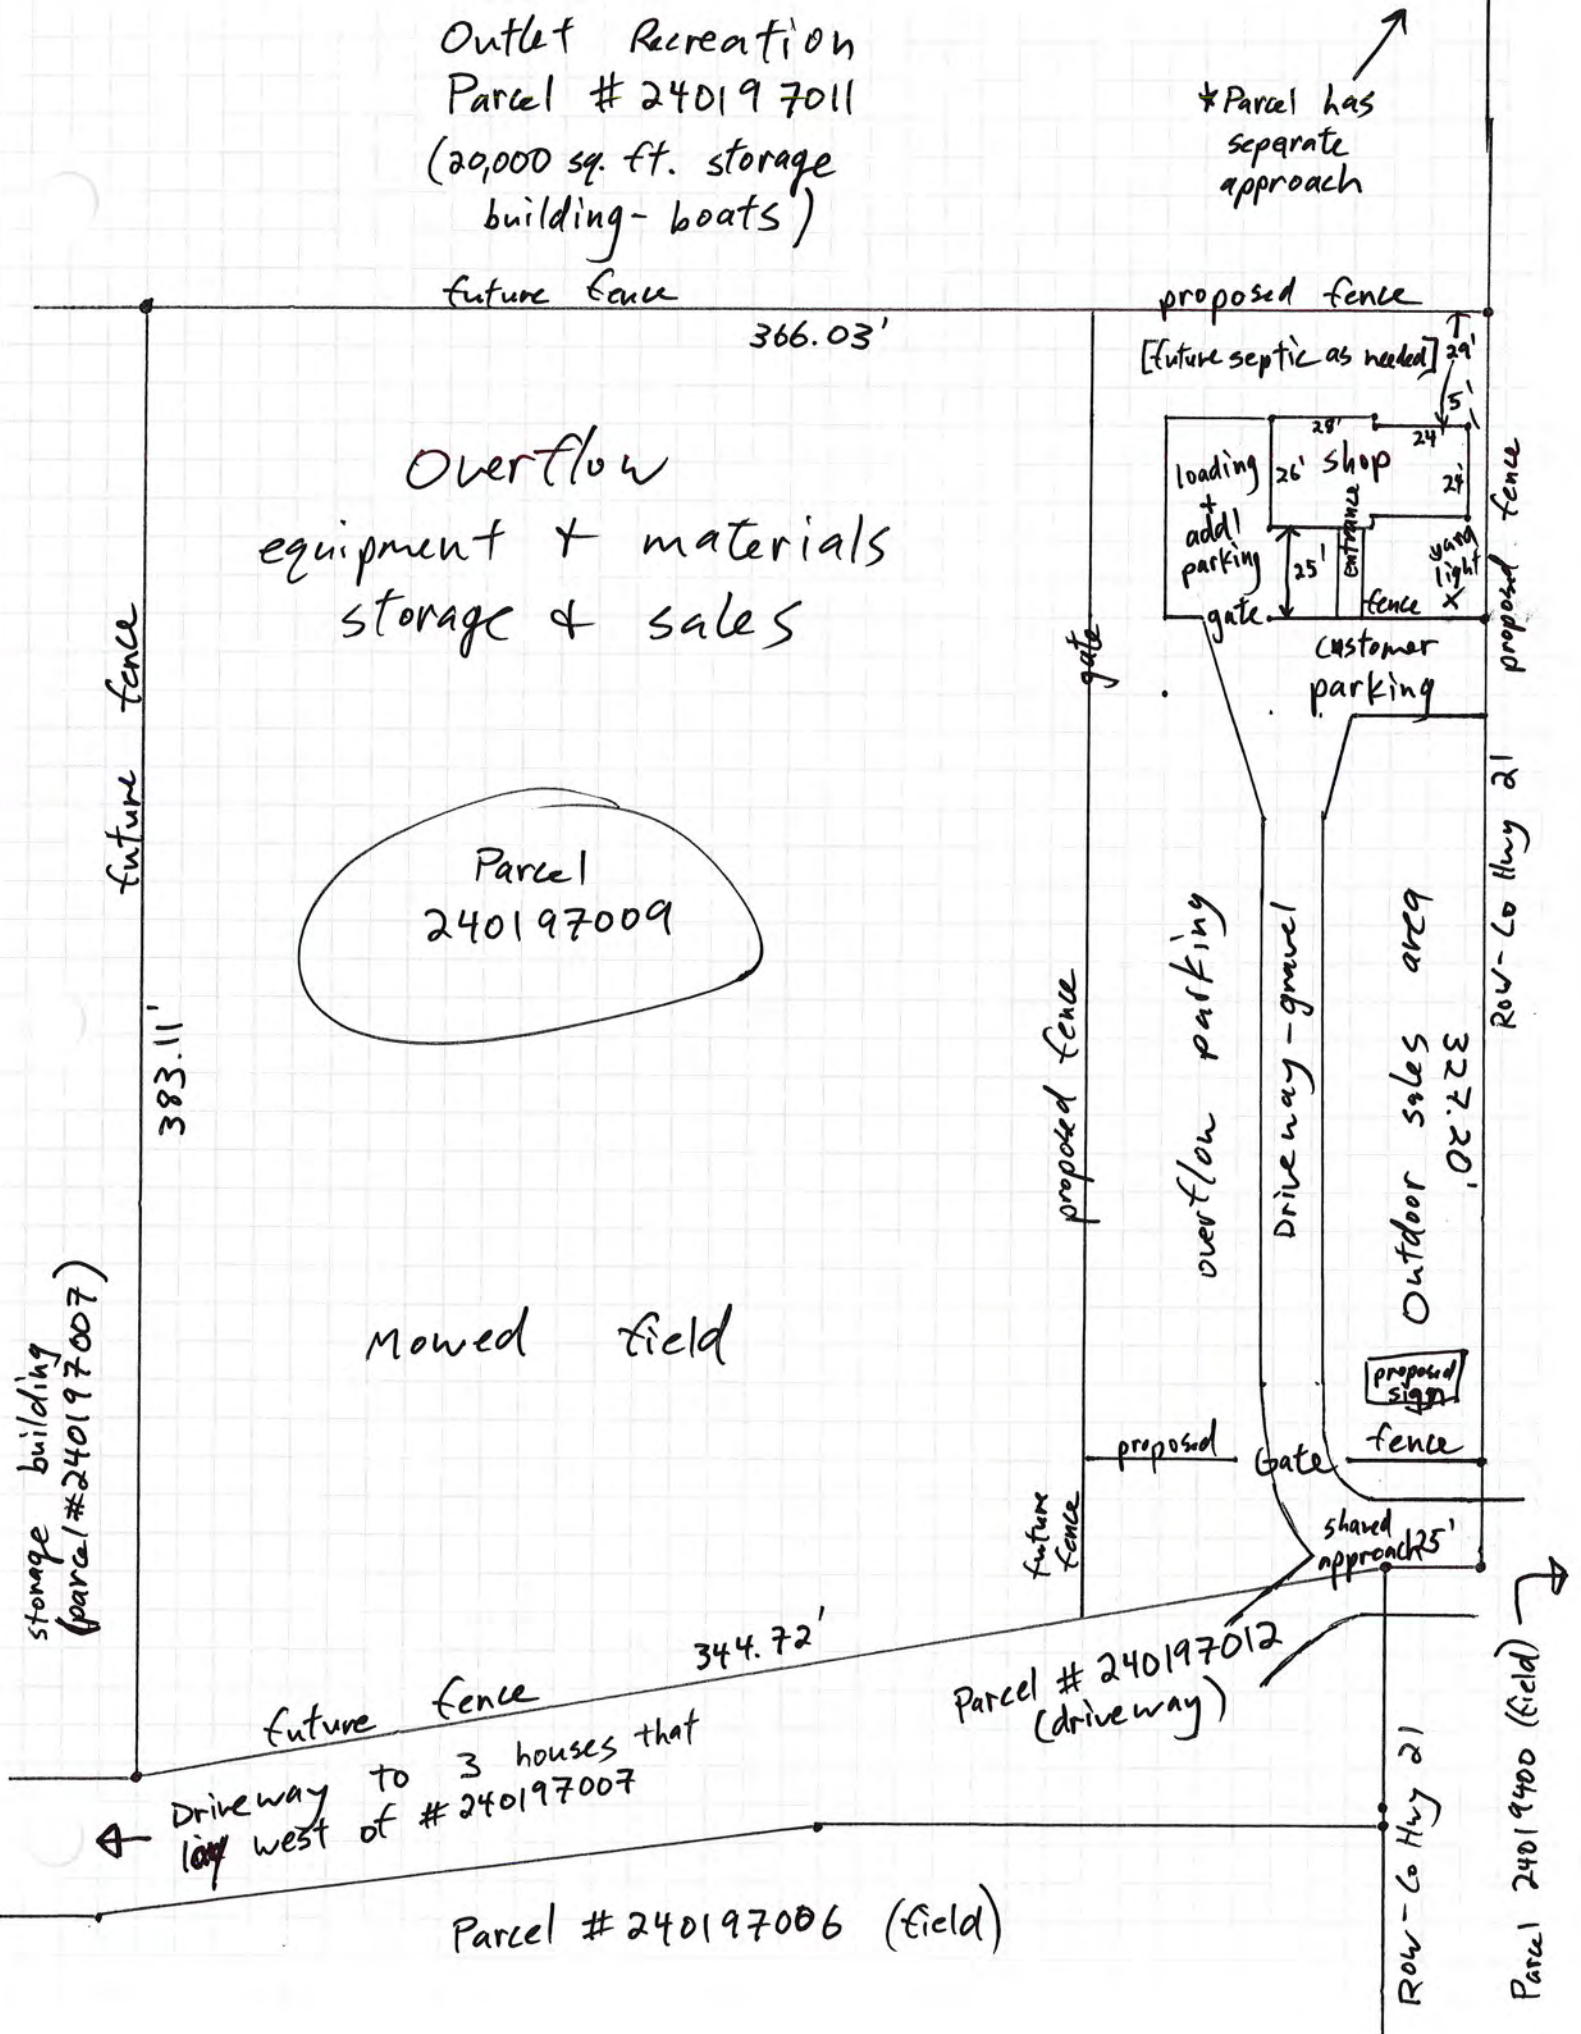 Outlet Recreation
Parcel # 240197011
(20,000 sq. ft. storage
building - boats)
*Parcel has
separate
approach
future fence
proposed fence
366.03'
[future septic as needed]
29'
5'
28'
24'
loading
+
add'l
parking
26'
shop
24'
entrance
25'
yard
light
X
gate
fence
customer
parking
proposed fence
proposed fence
Row - Co Hwy 21
Overflow
equipment + materials
storage + sales
gate
future fence
future fence
Parcel
240197009
383.11'
proposed fence
overflow parking
Driveway - gravel
Outdoor sales area
327.20'
Mowed field
storage building
(parcel #240197007)
proposed
sign
proposed
Gate
fence
future
fence
shared
approach
25'
344.72'
Parcel # 240197012
(driveway)
future fence
Driveway to 3 houses that
west of # 240197007
Parcel # 240197006 (field)
Row - Co Hwy 21
Parcel 24019400 (field)